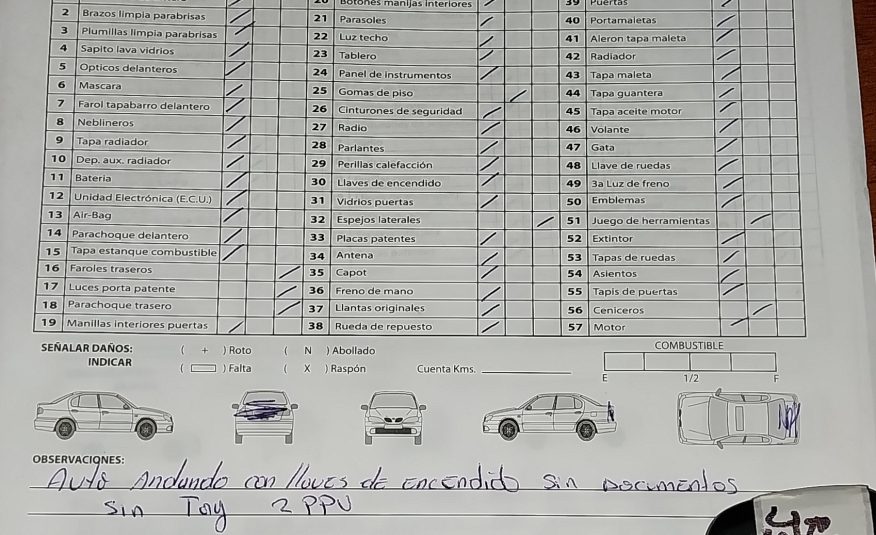 20 Botones manijas interiores 39 Puertas
2 Brazos limpia parabrisas 21 Parasoles 40 Portamaletas
3 Plumillas limpia parabrisas 22 Luz techo 41 Aleron tapa maleta
4 Sapito lava vidrios 23 Tablero 42 Radiador
5 Opticos delanteros 24 Panel de instrumentos 43 Tapa maleta
6 Mascara 25 Gomas de piso 44 Tapa guantera
7 Farol tapabarro delantero 26 Cinturones de seguridad 45 Tapa aceite motor
8 Neblineros 27 Radio 46 Volante
9 Tapa radiador 28 Parlantes 47 Gata
10 Dep. aux. radiador 29 Perillas calefacción 48 Llave de ruedas
11 Bateria 30 Llaves de encendido 49 3a Luz de freno
12 Unidad Electrónica (E.C.U.) 31 Vidrios puertas 50 Emblemas
13 Air-Bag 32 Espejos laterales 51 Juego de herramientas
14 Parachoque delantero 33 Placas patentes 52 Extintor
15 Tapa estanque combustible 34 Antena 53 Tapas de ruedas
16 Faroles traseros 35 Capot 54 Asientos
17 Luces porta patente 36 Freno de mano 55 Tapis de puertas
18 Parachoque trasero 37 Llantas originales 56 Ceniceros
19 Manillas interiores puertas 38 Rueda de repuesto 57 Motor
SEÑALAR DAÑOS: ( + ) Roto ( N ) Abollado COMBUSTIBLE
INDICAR ( ) Falta ( X ) Raspón Cuenta Kms.
E 1/2 F
OBSERVACIONES:
Auto Andando con llaves de encendido sin Documentos
sin Tag 2 PPU